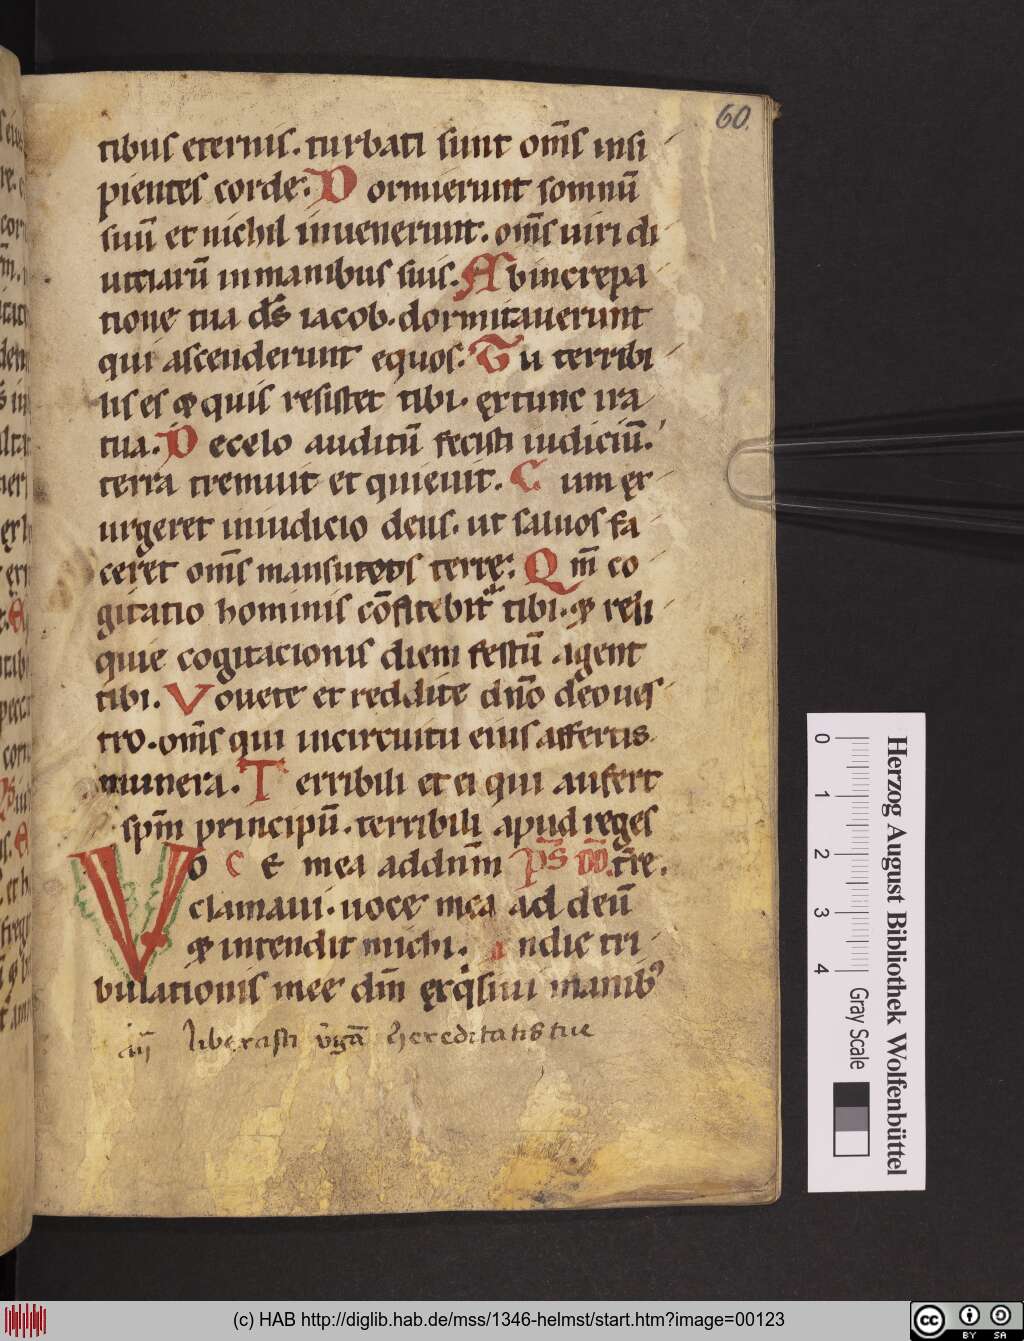 60.
tibus eternis. turbati sunt om̄s insi
pientes corde. Dormierunt somnū
suū et nichil inuenerunt. om̄s uiri di
uitiarū in manibus suis. Ab increpa
tione tua ds̄ iacob. dormitauerunt
qui ascenderunt equos. Tu terribi
lis es & quis resistet tibi. ex tunc ira
tua. De celo auditū fecisti iudiciū.
terra tremuit et quieuit. Cum ex
urgeret in iudicio deus. ut saluos fa
ceret om̄s mansuetos terrę. Qm̄ co
gitatio hominis cōfitebit᷑ tibi. & reli
quie cogitacionis diem festū agent
tibi. Vouete et reddite dn̄o deo ues
tro. om̄s qui in circuitu eius affertis
munera. Terribili et ei qui aufert
spm̄ principū. terribili apud reges
VOCE mea ad dnm̄ ps̄ dd̄. tr̄re.
clamaui. uoce mea ad deū
& intendit michi. In die tri
bulationis mee dm̄ exq̇siui manib᷒
liberasti v̄gā hereditatis tue
0 1 2 3 4
Gray Scale
Herzog August Bibliothek Wolfenbüttel
(c) HAB http://diglib.hab.de/mss/1346-helmst/start.htm?image=00123
cc BY SA